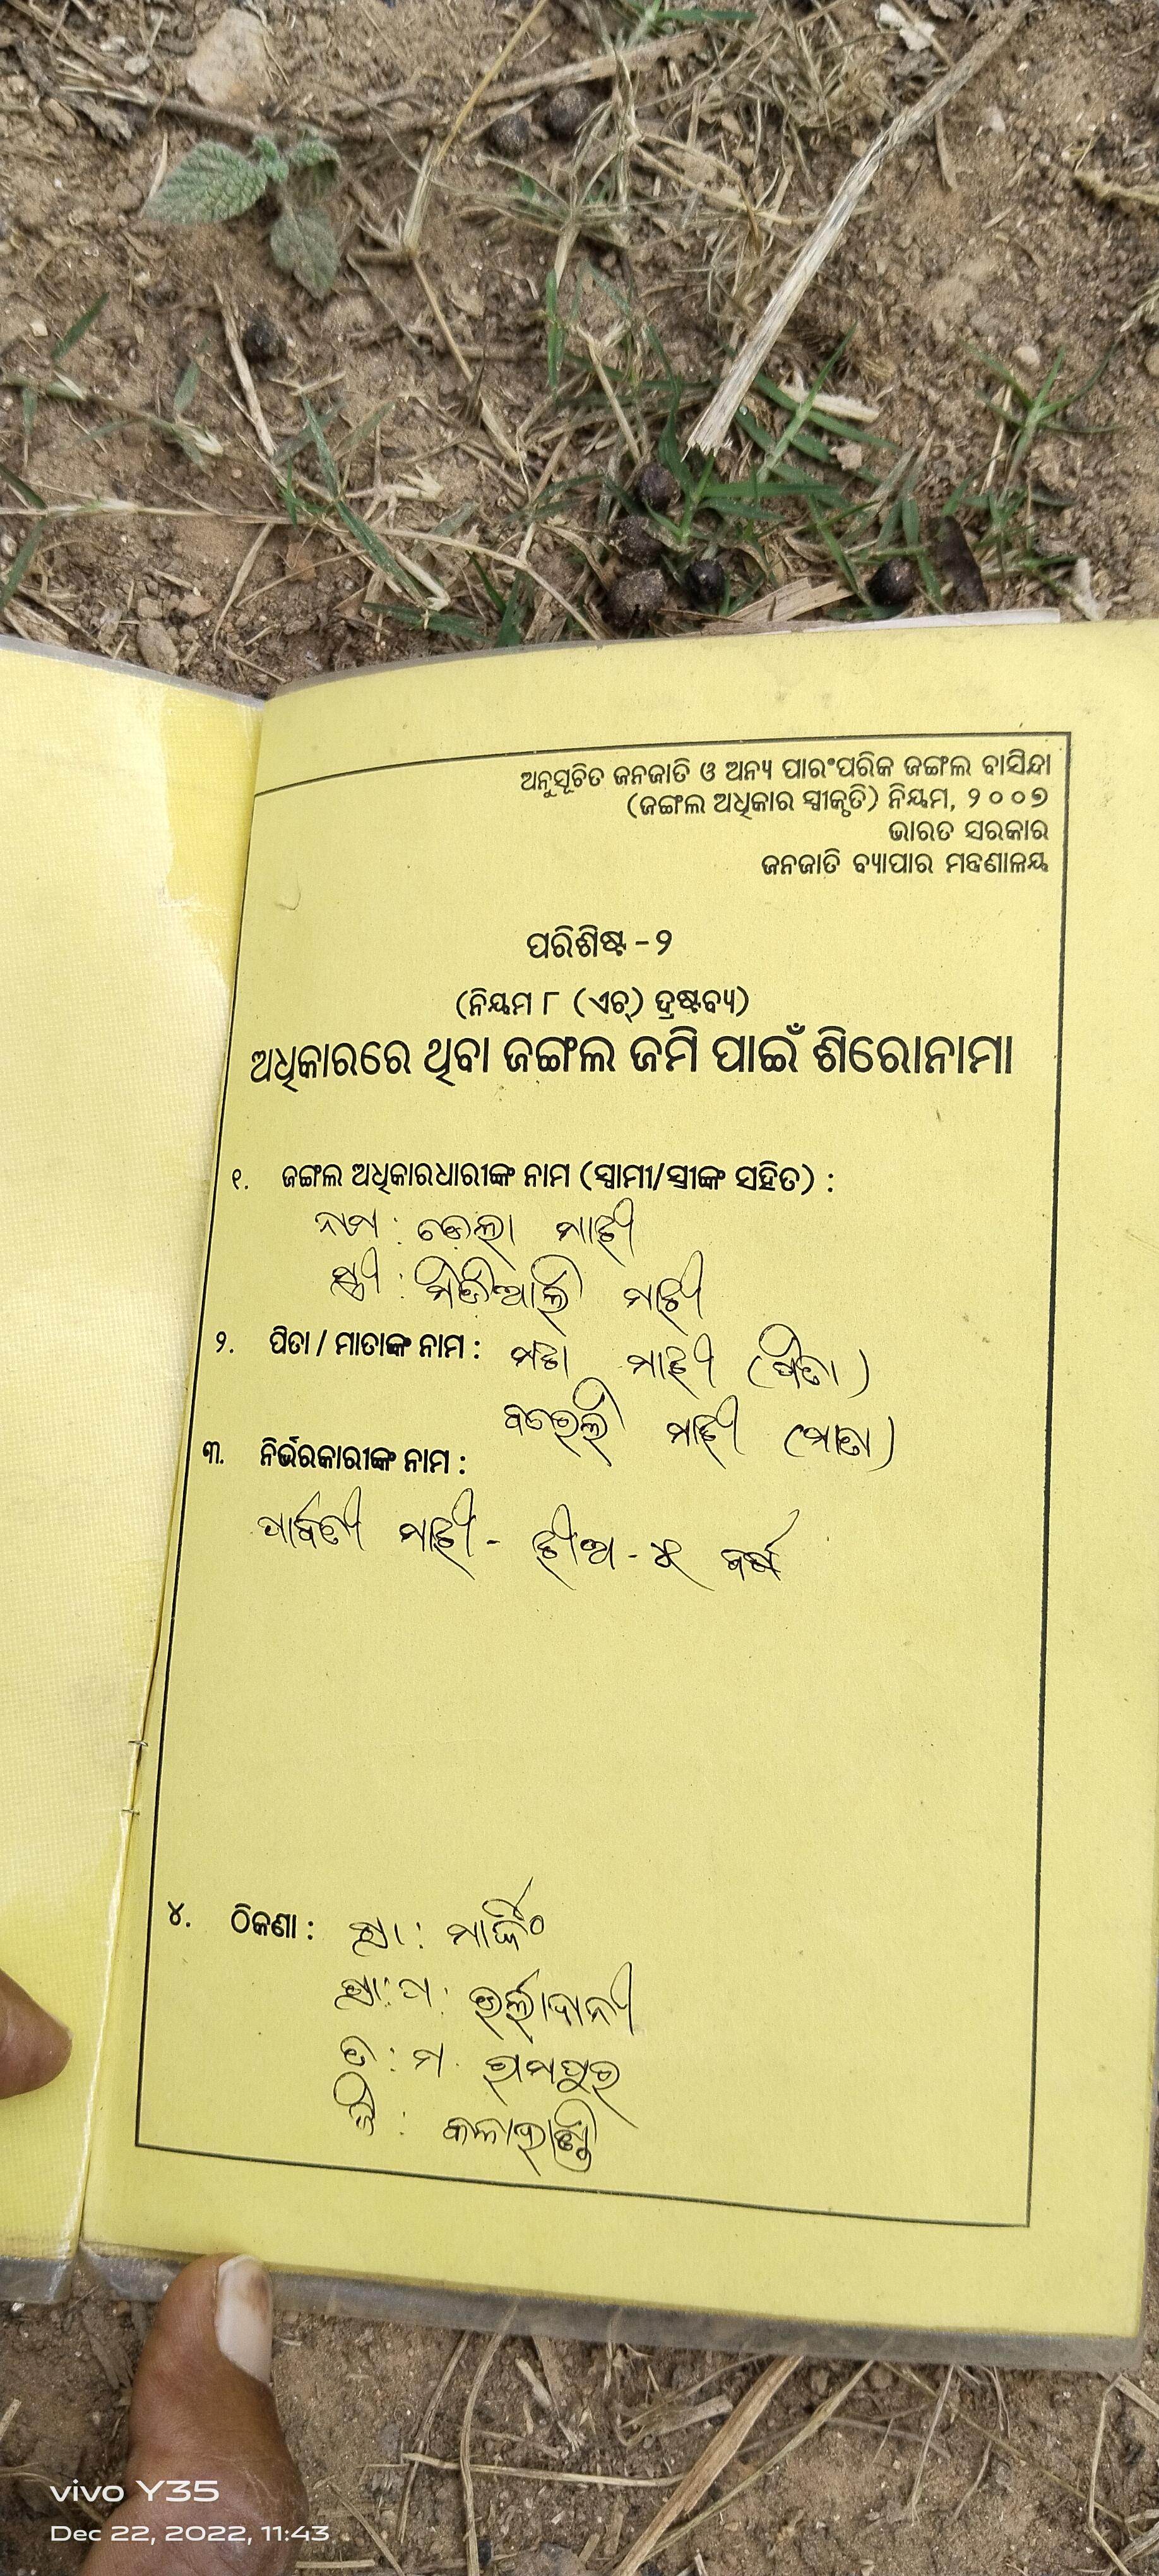 ଅନୁସୂଚିତ ଜନଜାତି ଓ ଅନ୍ୟ ପାରଂପରିକ ଜଙ୍ଗଲ ବାସିନ୍ଦା
(ଜଙ୍ଗଲ ଅଧିକାର ସ୍ୱୀକୃତି) ନିୟମ, ୨୦୦୭
ଭାରତ ସରକାର
ଜନଜାତି ବ୍ୟାପାର ମନ୍ତ୍ରଣାଳୟ
ପରିଶିଷ୍ଟ - ୨
(ନିୟମ ୮ (ଏଚ୍) ଦ୍ରଷ୍ଟବ୍ୟ)
ଅଧିକାରରେ ଥିବା ଜଙ୍ଗଲ ଜମି ପାଇଁ ଶିରୋନାମା
୧. ଜଙ୍ଗଲ ଅଧିକାରଧାରୀଙ୍କ ନାମ (ସ୍ୱାମୀ/ସ୍ତ୍ରୀଙ୍କ ସହିତ) :
ନାମ : ମାଝୀ
ସ୍ତ୍ରୀ : ମାଝୀ
୨. ପିତା / ମାତାଙ୍କ ନାମ : ମାଝୀ (ପିତା)
ମାଝୀ (ମାତା)
୩. ନିର୍ଭରକାରୀଙ୍କ ନାମ :
ପାର୍ବତୀ ମାଝୀ - ଝୀଅ - ୪ ବର୍ଷ
୪. ଠିକଣା : ଗ୍ରା :
ଗ୍ରା: ପ:
ତ : ମ. ରାମପୁର
ଜି : କଳାହାଣ୍ଡି
vivo Y35
Dec 22, 2022, 11:43